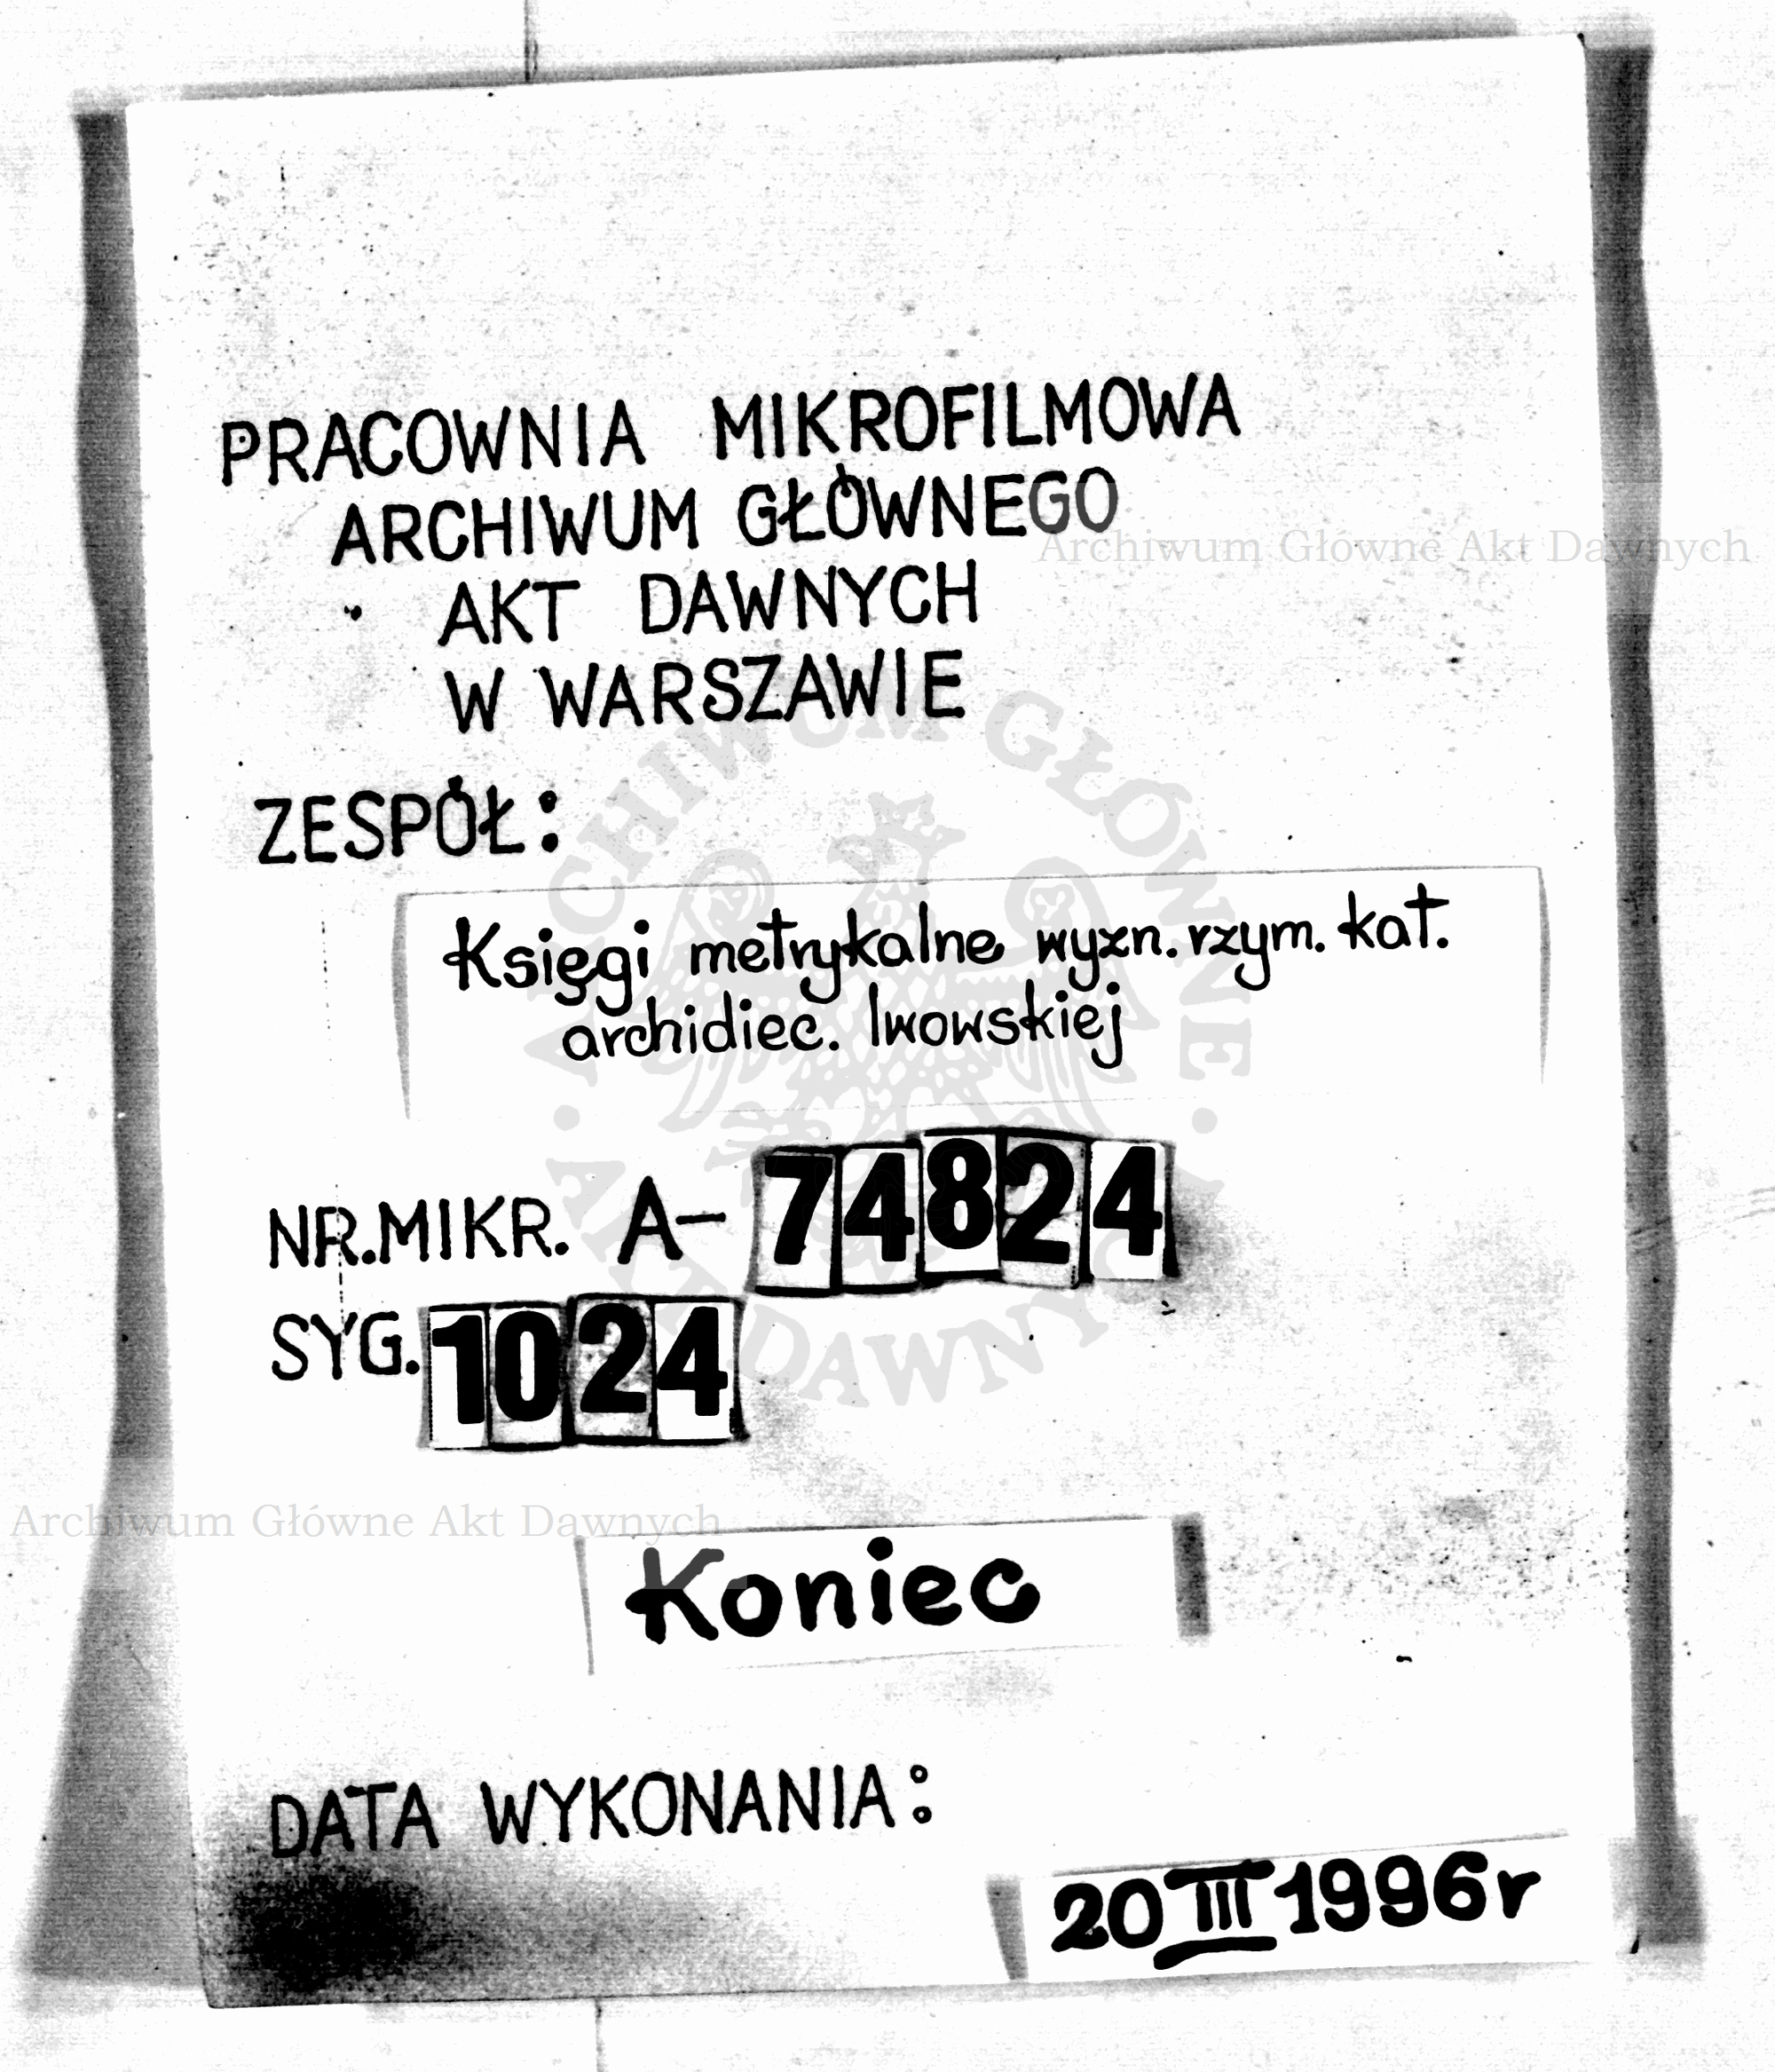 PRACOWNIA MIKROFILMOWA
ARCHIWUM GŁÓWNEGO
AKT DAWNYCH
W WARSZAWIE
Archiwum Główne Akt Dawnych
ARCHIWUM GŁÓWNE · AKT DAWNYCH ·
ZESPÓŁ:
Księgi metrykalne wyzn. rzym. kat.
archidiec. lwowskiej
NR. MIKR. A- 74824
SYG. 1024
Archiwum Główne Akt Dawnych
Koniec
DATA WYKONANIA:
20 III 1996 r